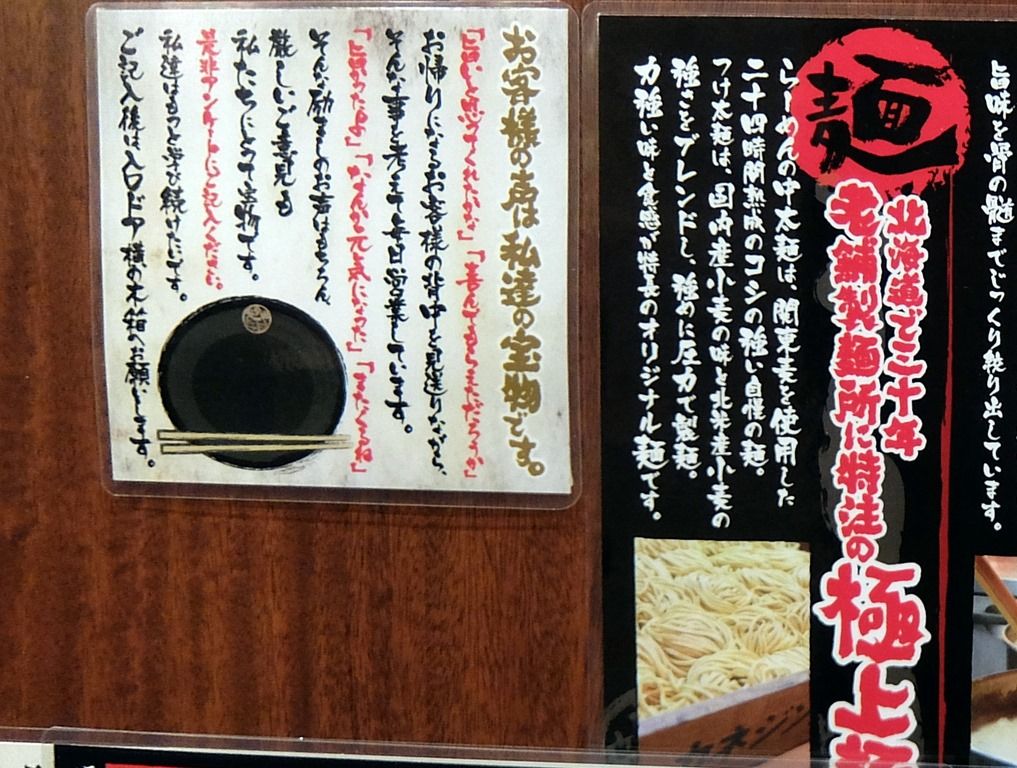 旨味を骨の髄までじっくり絞り出しています。
麺
北海道で三十年
老舗製麺所に特注の極上
らーめんの中太麺は、関東麦を使用した
二十四時間熟成のコシの強い自慢の麺。
つけ太麺は、国内産小麦の味と北米産小麦の
強さをブレンドし、強めに圧力で製麺。
力強い味と食感が特長のオリジナル麺です。
お客様の声は私達の宝物です。
『旨いと思ってくれたかな』『喜んでもらえただろうか』
お帰りになるお客様の背中を見送りながら、
そんな事を考えて毎日営業しています。
『旨かったよ』『なんか元気になった』『またくるね』
そんな励ましのお声はもちろん
厳しいご意見も
私たちにとって宝物です。
是非アンケートにご記入ください。
私達はもっと学び続けたいです。
ご記入後は入口ドア横の木箱へお願いします。